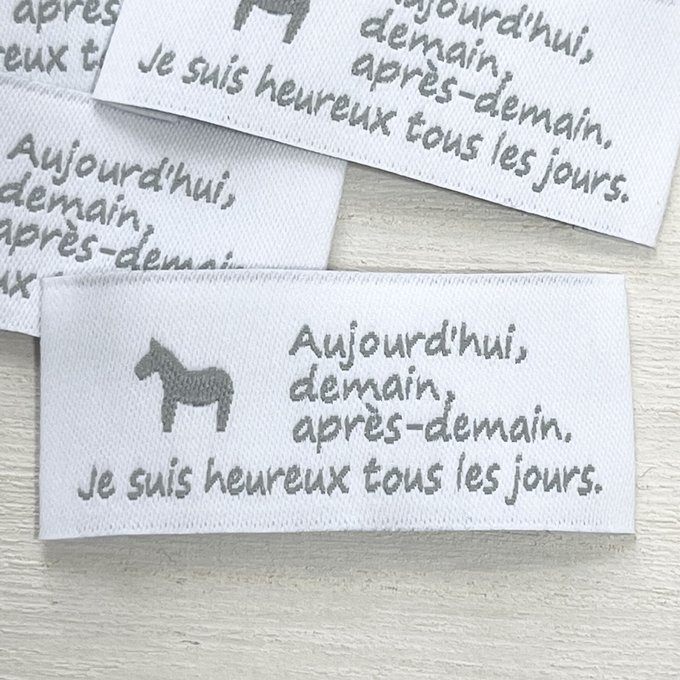 après
eux t
Aujourd'hui,
demain,
après-demain.
Je suis heureux tous les jours.
Aujourd'hui,
demain,
après-demain
ux
Aujourd'hui,
demain,
après-demain.
Je suis heureux tous les jours.